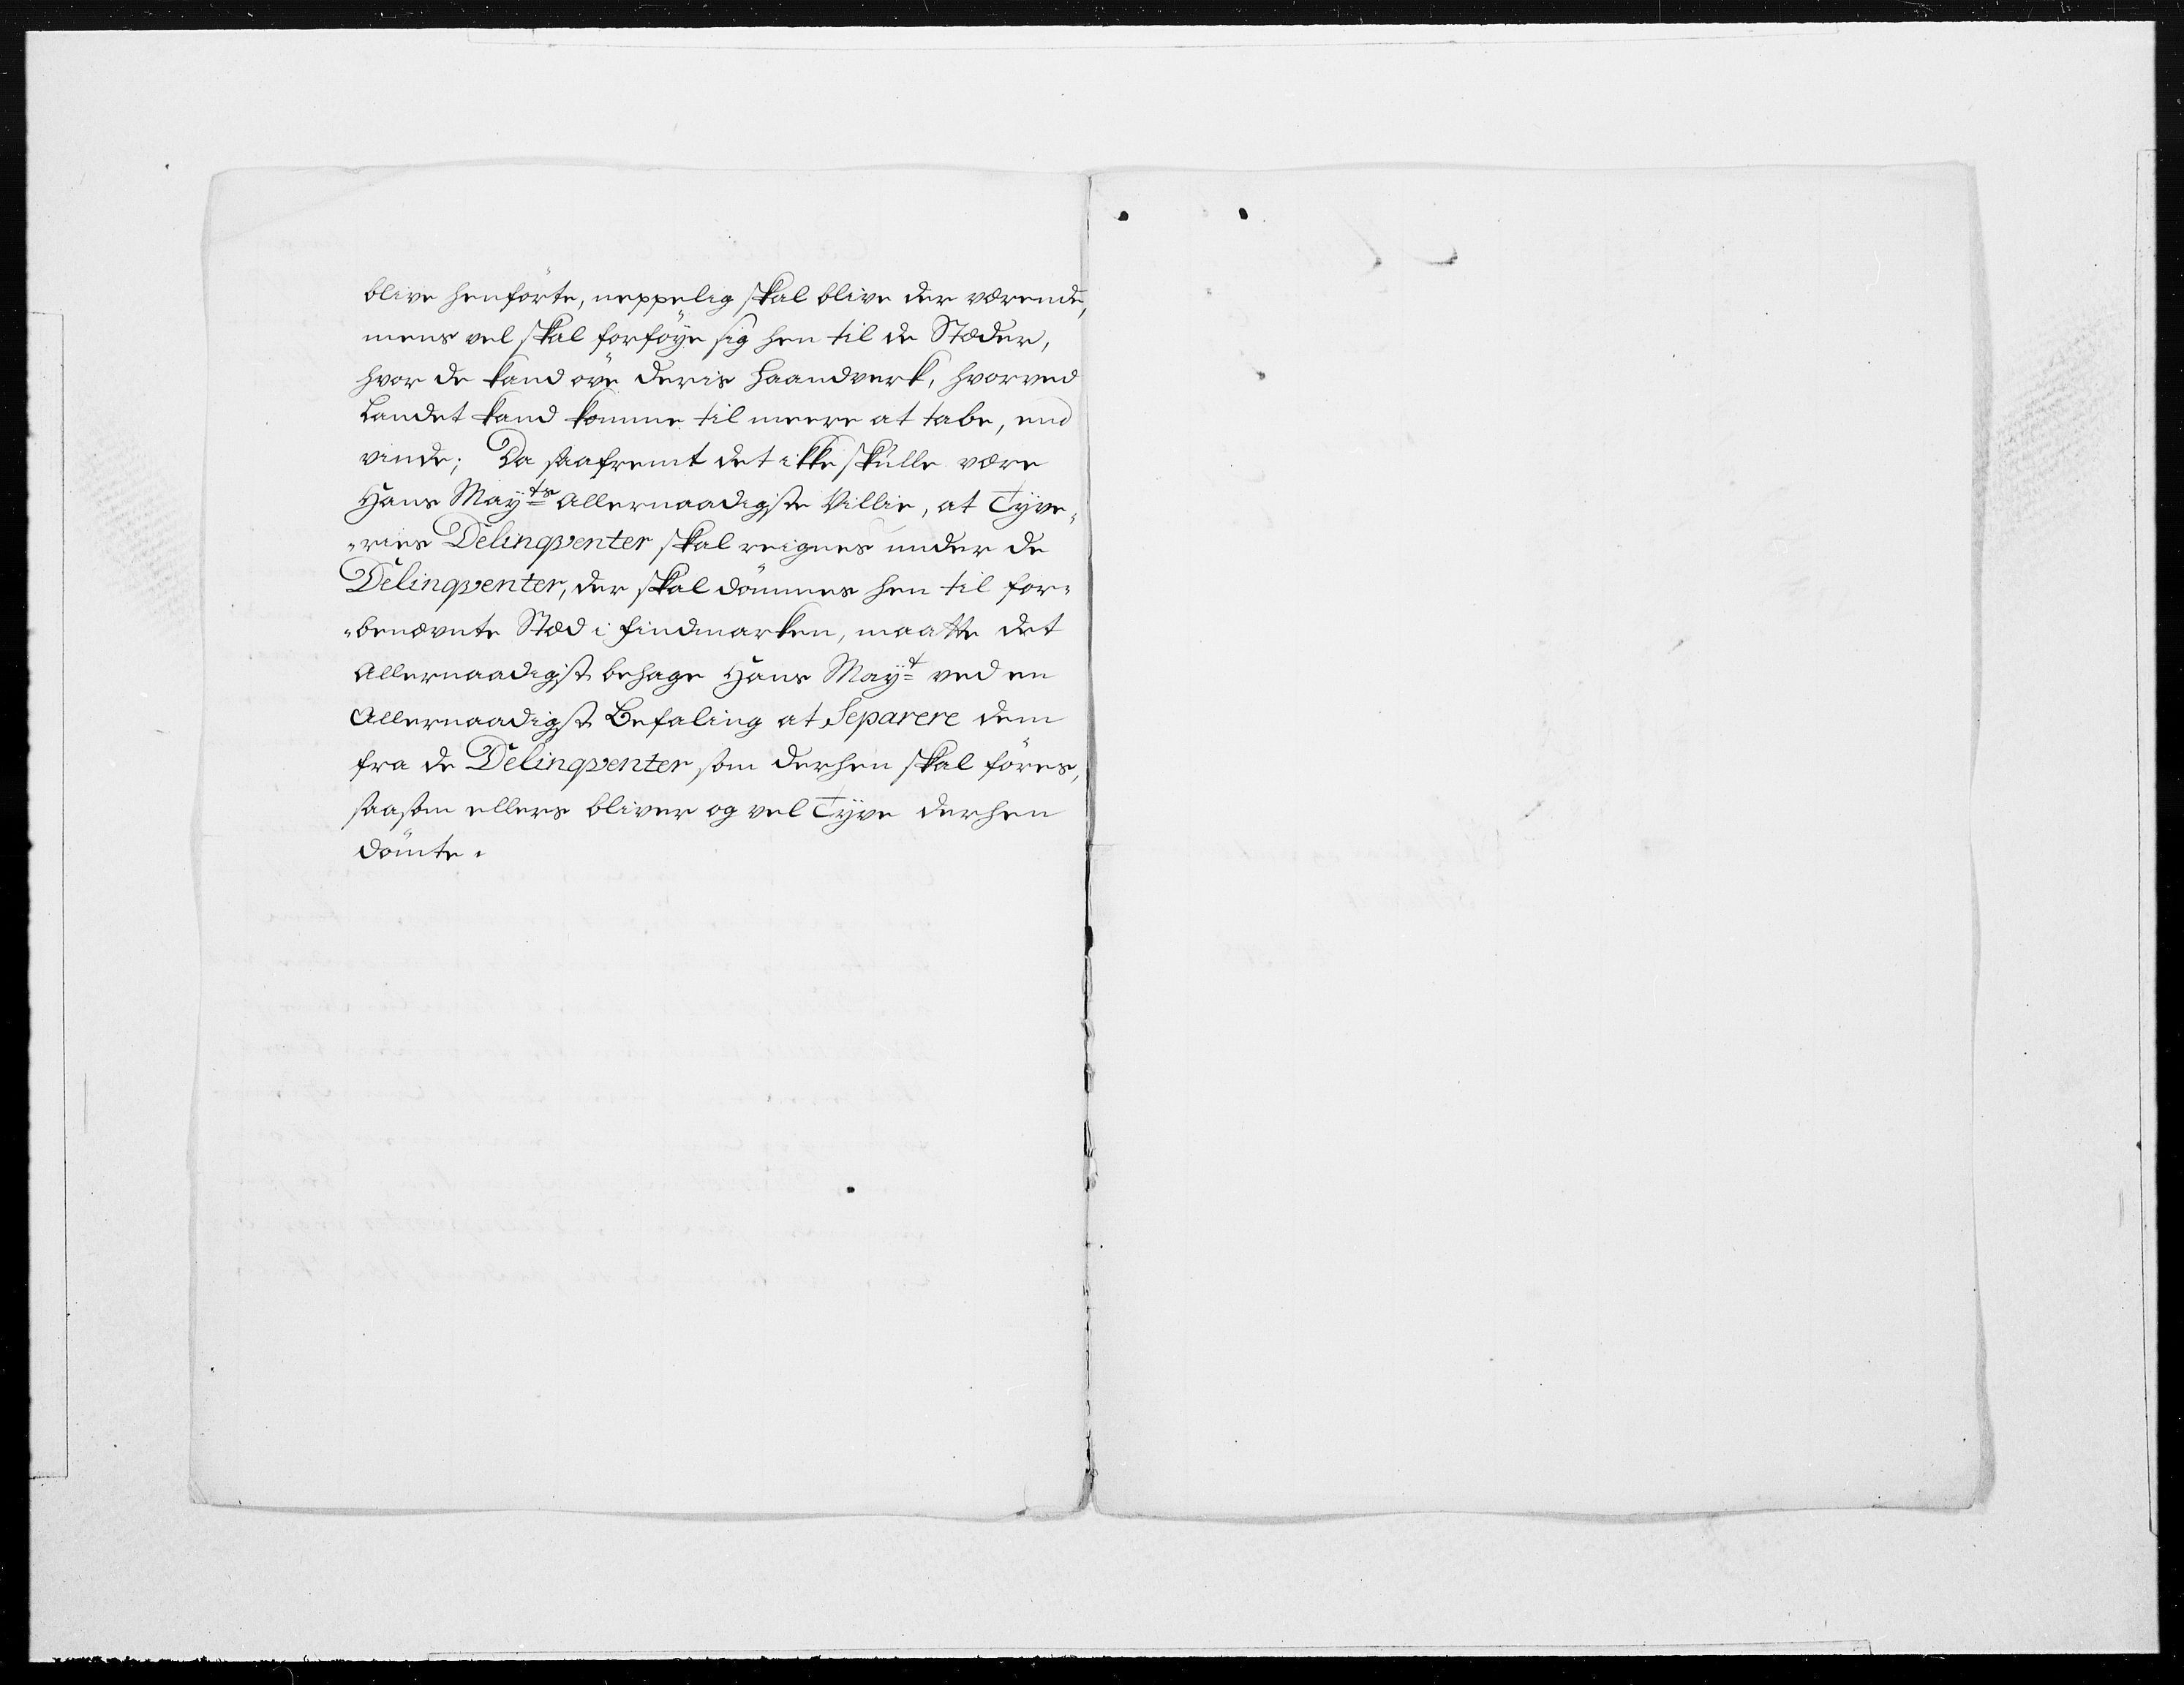 blive henförte, neppelig skal blive der værende,
mens vel skal forföye sig hen til de Stæder,
hvor de kand öve deris Haandverk, hvorved
Landet kand komme til meere at tabe, end
vinde; Da saafremt det ikke skulle være
Hans Mayts Allernaadigste Villie, at Tyve-
-ries Delinqventer skal reignes under de
Delinqventer, der skal dömmes hen til for-
-benævnte Stæd i Findmarken, maatte det
Allernaadigst behage Hans Mayt ved en
Allernaadigst Befaling at Separere dem
fra de Delinqventer som derhen skal föres,
saasom ellers bliver og vel Tyve derhen
dömte.